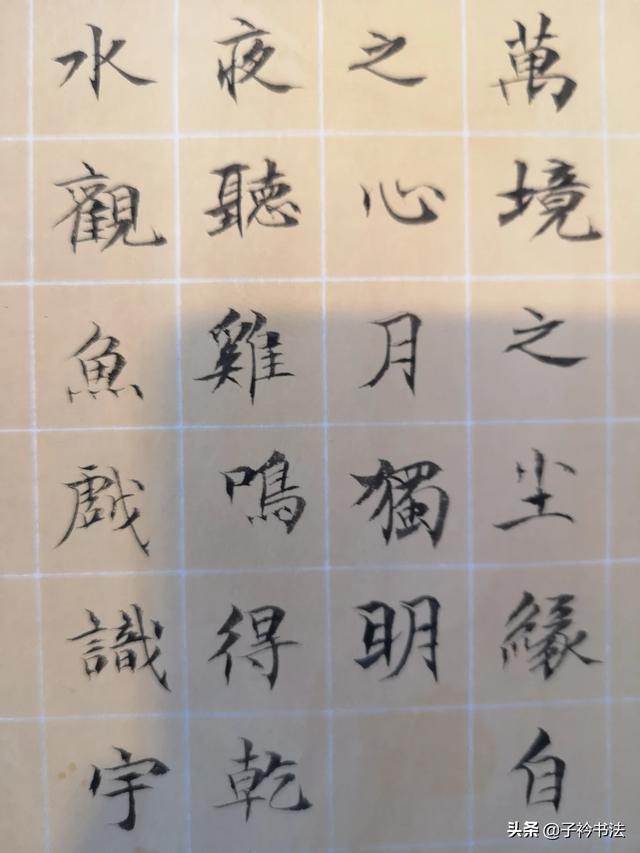 萬境之尘緣自
之心月獨明
夜聽雞鳴得乾
水觀魚戲識宇
头条 @子衿书法